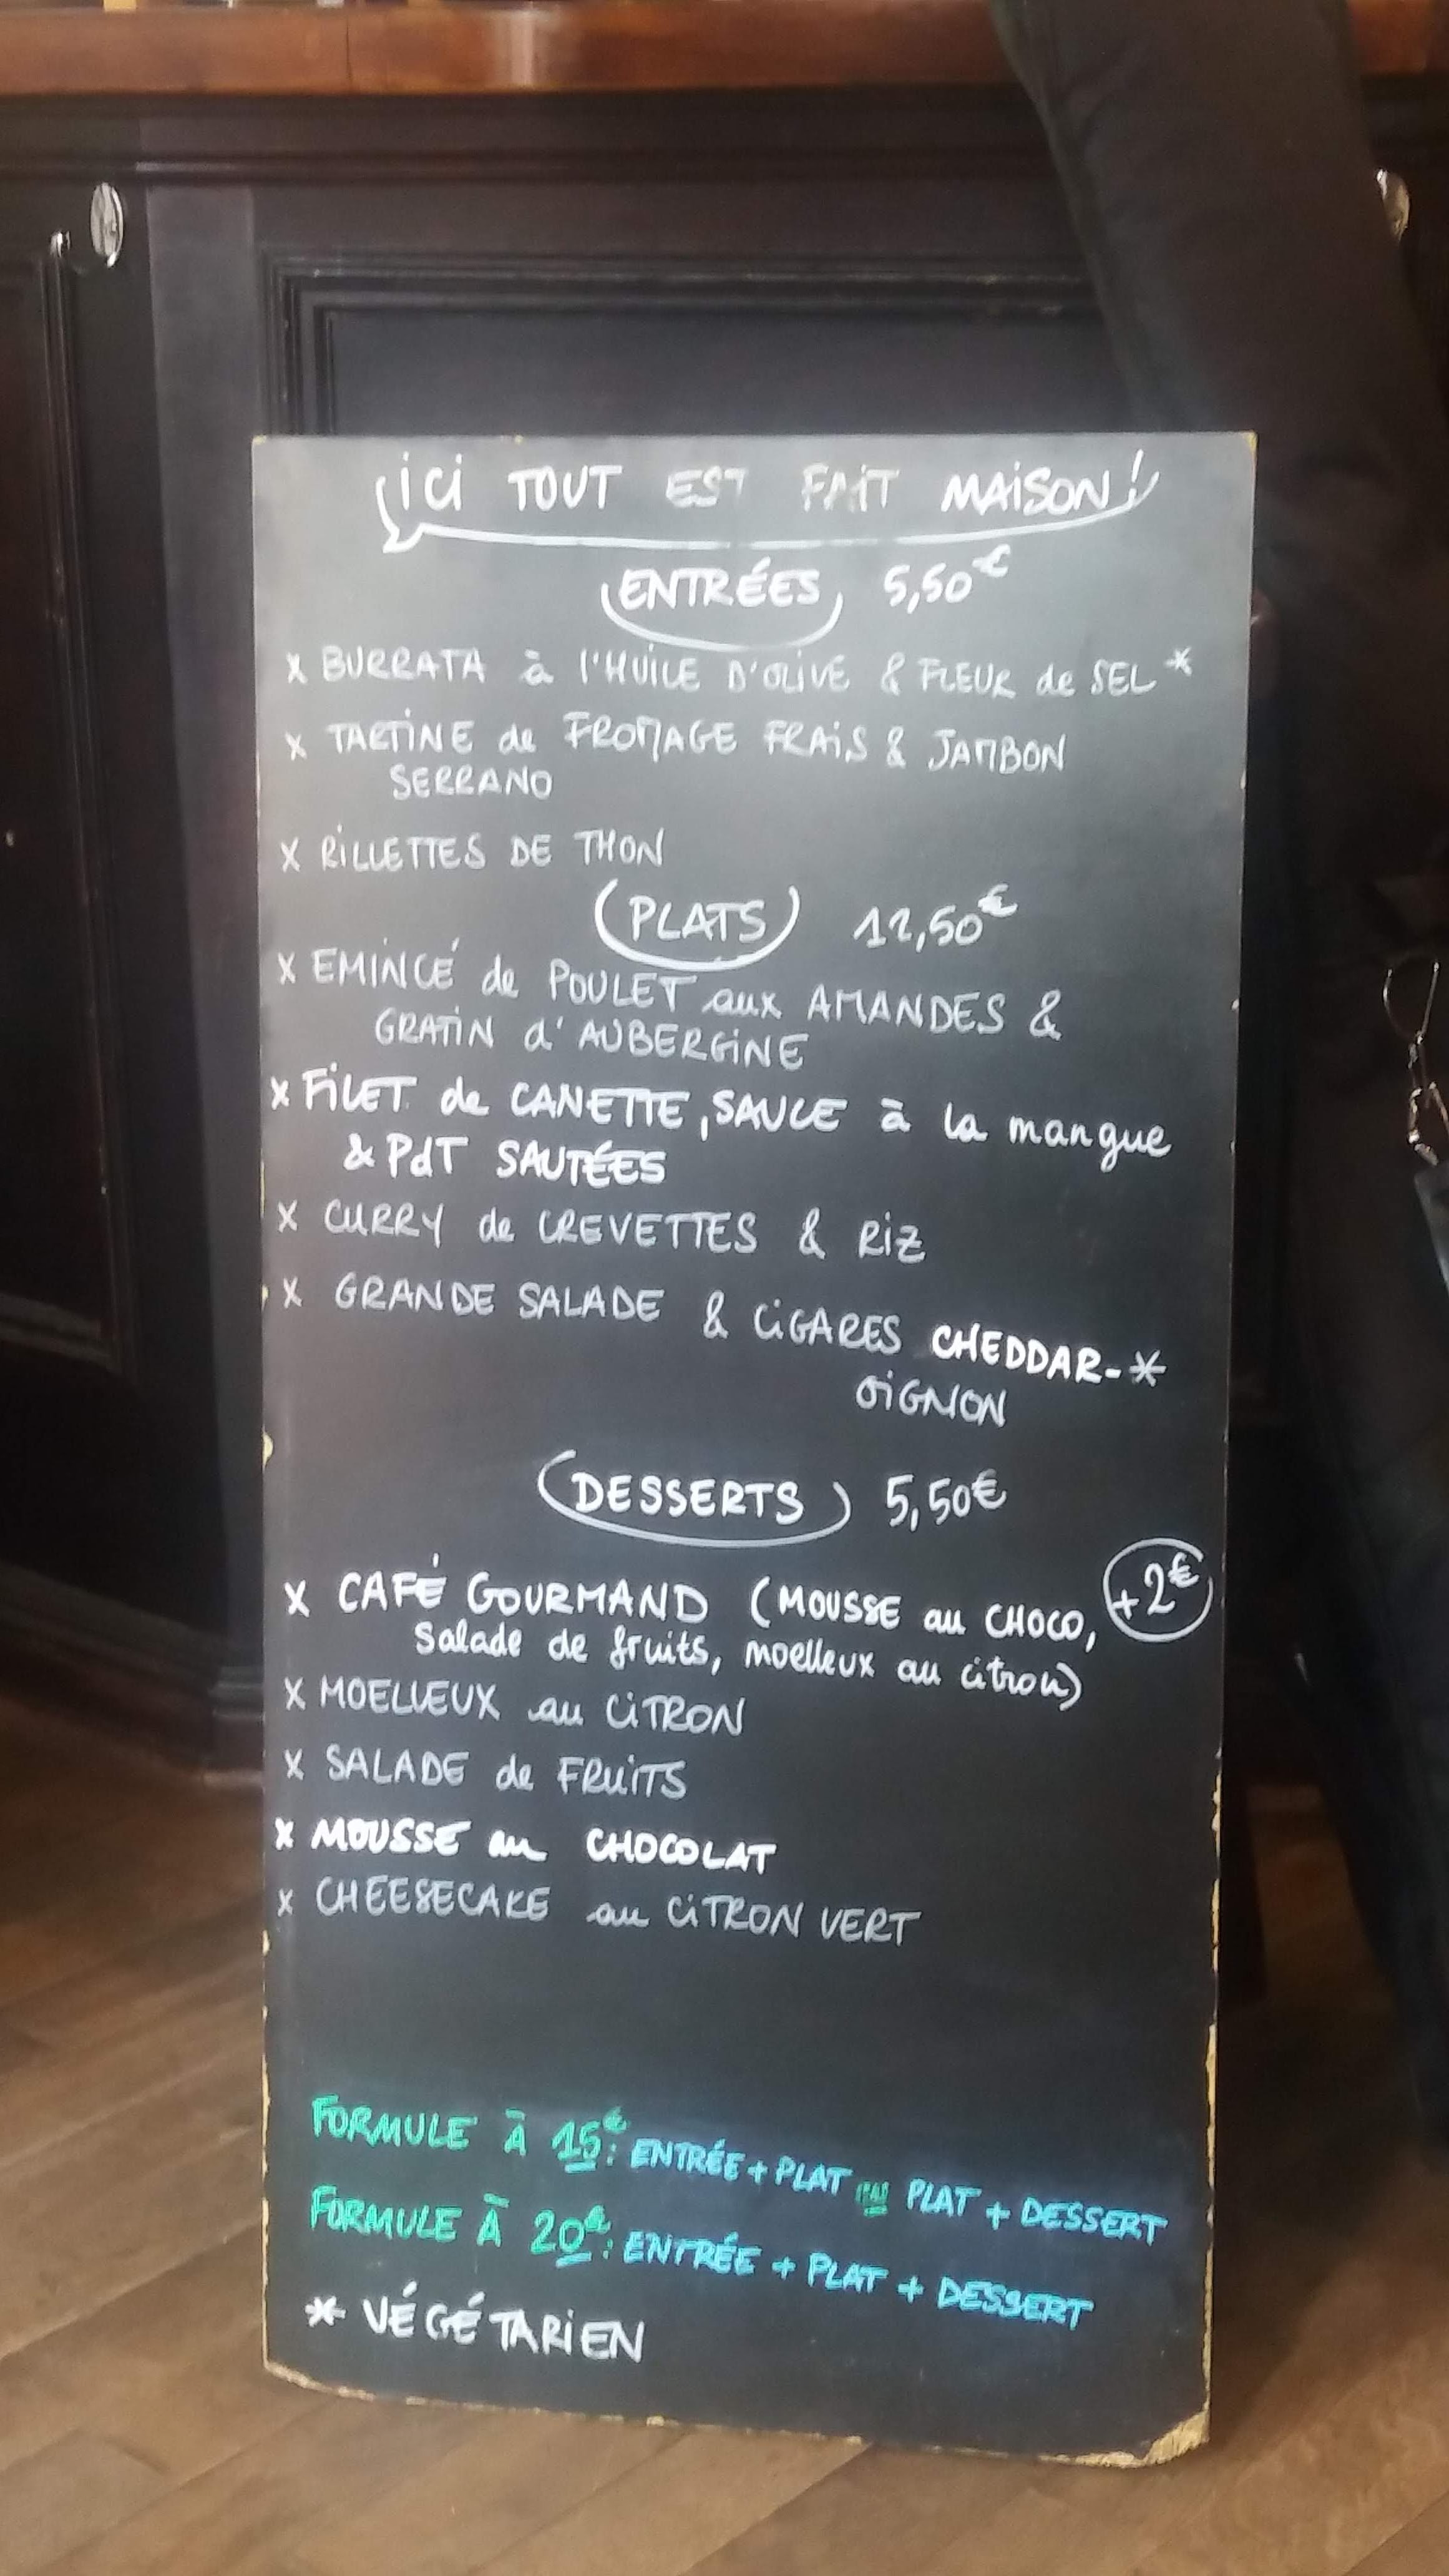 ICI TOUT EST FAIT MAISON!
ENTRÉES 5,50€
x BURRATA à l'HUILE D'OLIVE & FLEUR de SEL *
x TARTINE de FROMAGE FRAIS & JAMBON
SERRANO
x RILLETTES DE THON
PLATS 12,50€
x EMINCÉ de POULET aux AMANDES &
GRATIN d'AUBERGINE
x FILET de CANETTE, SAUCE à la mangue
& PdT SAUTÉES
x CURRY de CREVETTES & RIZ
x GRANDE SALADE & CIGARES CHEDDAR- *
OIGNON
DESSERTS 5,50€
x CAFÉ GOURMAND (MOUSSE au CHOCO, +2€
Salade de fruits, moelleux au citron)
x MOELLEUX au CITRON
x SALADE de FRUITS
x MOUSSE au CHOCOLAT
x CHEESECAKE au CITRON VERT
FORMULE À 15€: ENTRÉE + PLAT OU PLAT + DESSERT
FORMULE À 20€: ENTRÉE + PLAT + DESSERT
* VÉGÉTARIEN